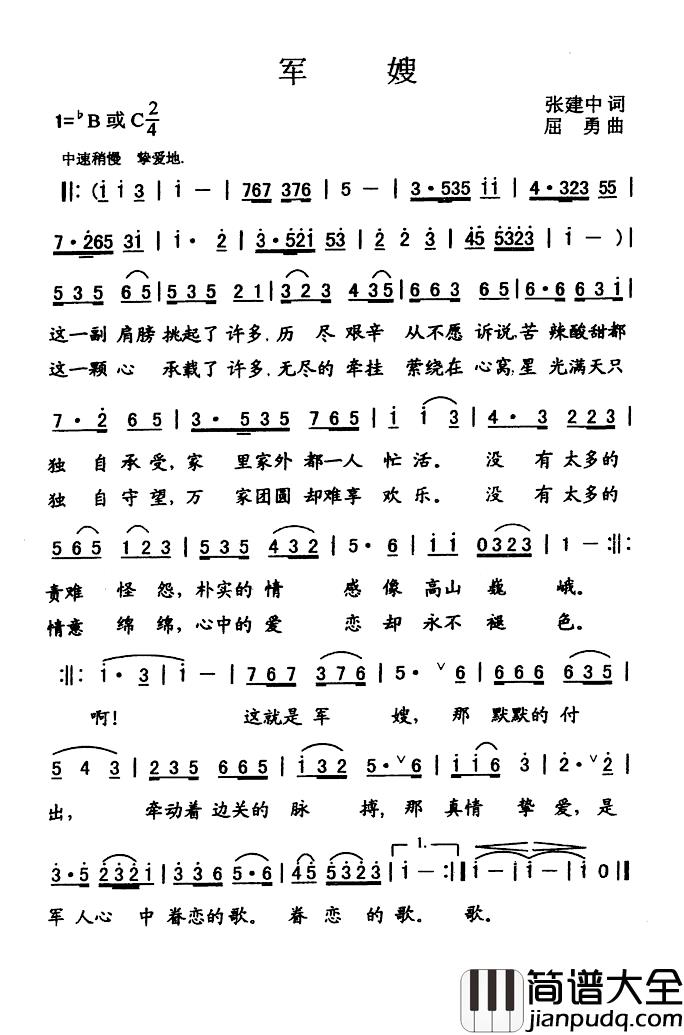 军 嫂
1=♭B 或 C 2/4
张建中 词
屈 勇 曲
中速稍慢 挚爱地.
‖: (i i 3 | i — | 767 376 | 5 — | 3·535 i i | 4·323 55 |
7·265 3i | i· 2 | 3·521 53 | 2 2 3 | 45 5323 | i — ) |
535 65 | 535 21 | 323 435 | 663 65 | 6·663i |
这一副 肩膀 挑起了 许多, 历 尽 艰辛 从不愿 诉说, 苦 辣酸甜都
这一颗 心 承载了 许多, 无尽的 牵挂 萦绕在 心窝, 星 光满天只
7·2 65 | 3· 535 765 | i i 3 | 4· 3 223 |
独 自 承 受, 家 里家外 都一人 忙 活。 没 有 太多的
独 自 守 望, 万 家团圆 却难享 欢 乐。 没 有 太多的
565 123 | 535 432 | 5· 6 | i i 0323 | 1 — :‖:
责难 怪 怨, 朴实的 情 感 像 高山 巍 峨。
情意 绵 绵, 心中的 爱 恋 却 永不 褪 色。
:‖: i· 3 | i — | 767 376 | 5· ∨ 6 | 666 635 |
啊! 这就是 军 嫂, 那 默默的 付
5 4 3 | 235 665 | i32 5·∨6 | i i6 3 | 2·∨2 |
出, 牵动着 边关的 脉 搏, 那 真情 挚 爱, 是
3·5 2321 | 223 665·6 | 45 5323 | i — :‖ i — | i — | i0 ‖
1.
军 人心 中 眷恋的歌。 眷 恋 的 歌。 歌。
简谱大全
jianpudq.com